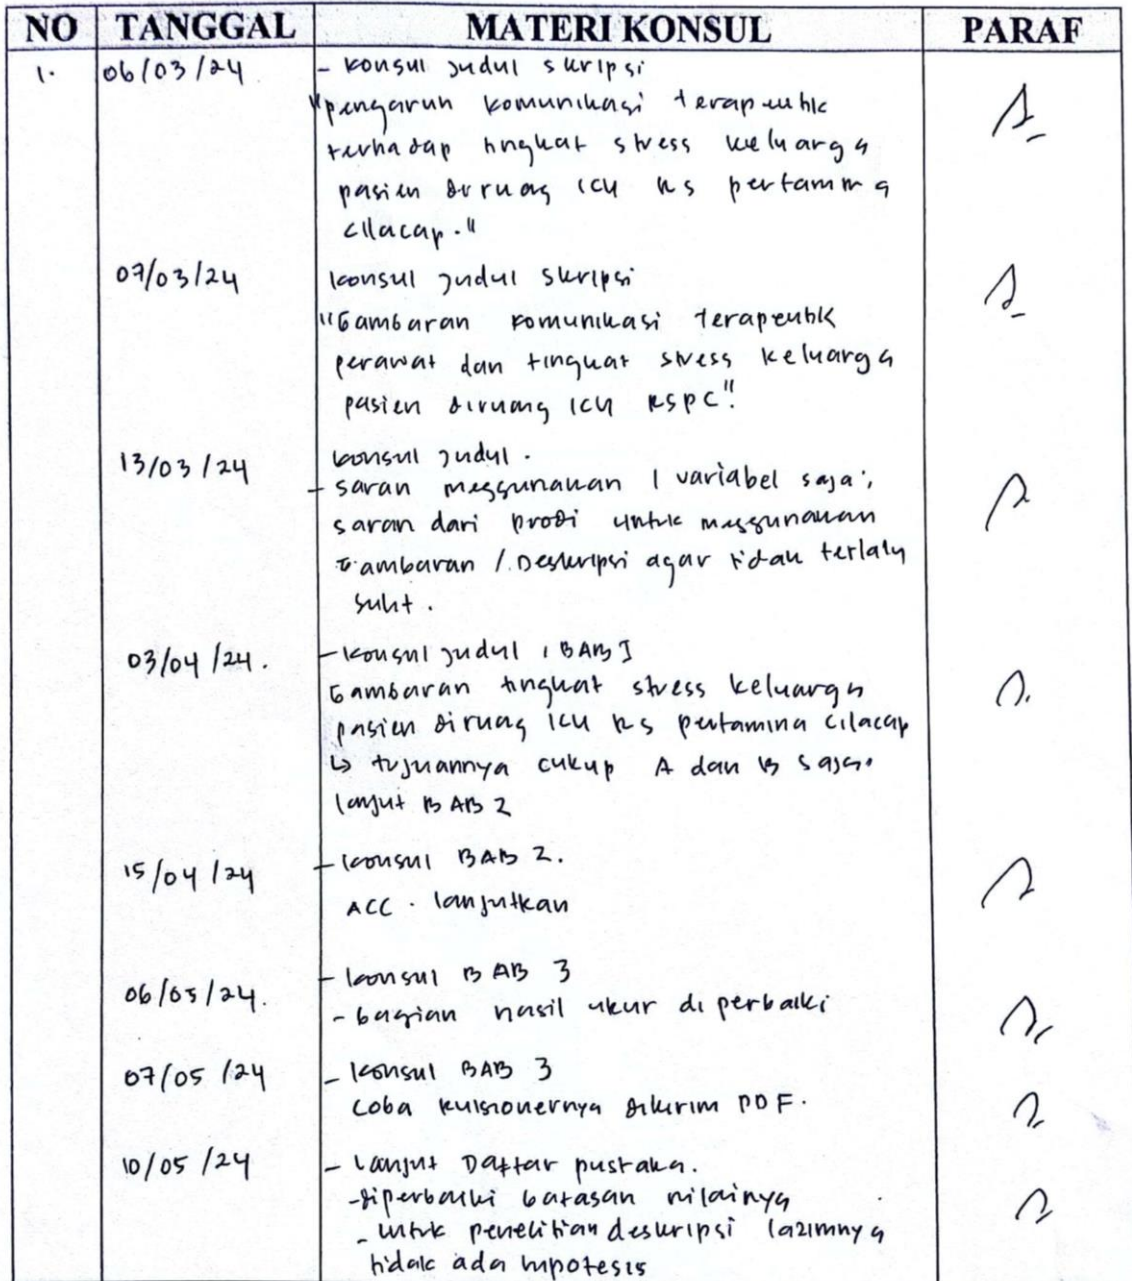 NO TANGGAL MATERI KONSUL PARAF
1. 06/03/24 - konsul judul skripsi
"pengaruh komunikasi terapeutik
terhadap tingkat stress keluarga
pasien diruang ICU RS pertamina
cilacap."
07/03/24 konsul judul skripsi
"Gambaran komunikasi terapeutik
perawat dan tingkat stress keluarga
pasien diruang ICU RSPC".
13/03/24 konsul judul.
- saran menggunakan 1 variabel saja,
saran dari prodi untuk menggunakan
Gambaran / Deskripsi agar tidak terlalu
sulit.
03/04/24. - Konsul judul, BAB I
Gambaran tingkat stress keluarga
pasien diruang ICU RS pertamina cilacap
↳ tujuannya cukup A dan B saja.
lanjut BAB 2
15/04/24 - konsul BAB 2.
ACC. lanjutkan
06/05/24. - konsul BAB 3
- bagian hasil ukur di perbaiki
07/05/24 - konsul BAB 3
coba kuisionernya dikirim PDF.
10/05/24 - lanjut Daftar pustaka.
- diperbaiki batasan nilainya
- untuk penelitian deskripsi lazimnya
tidak ada hipotesis